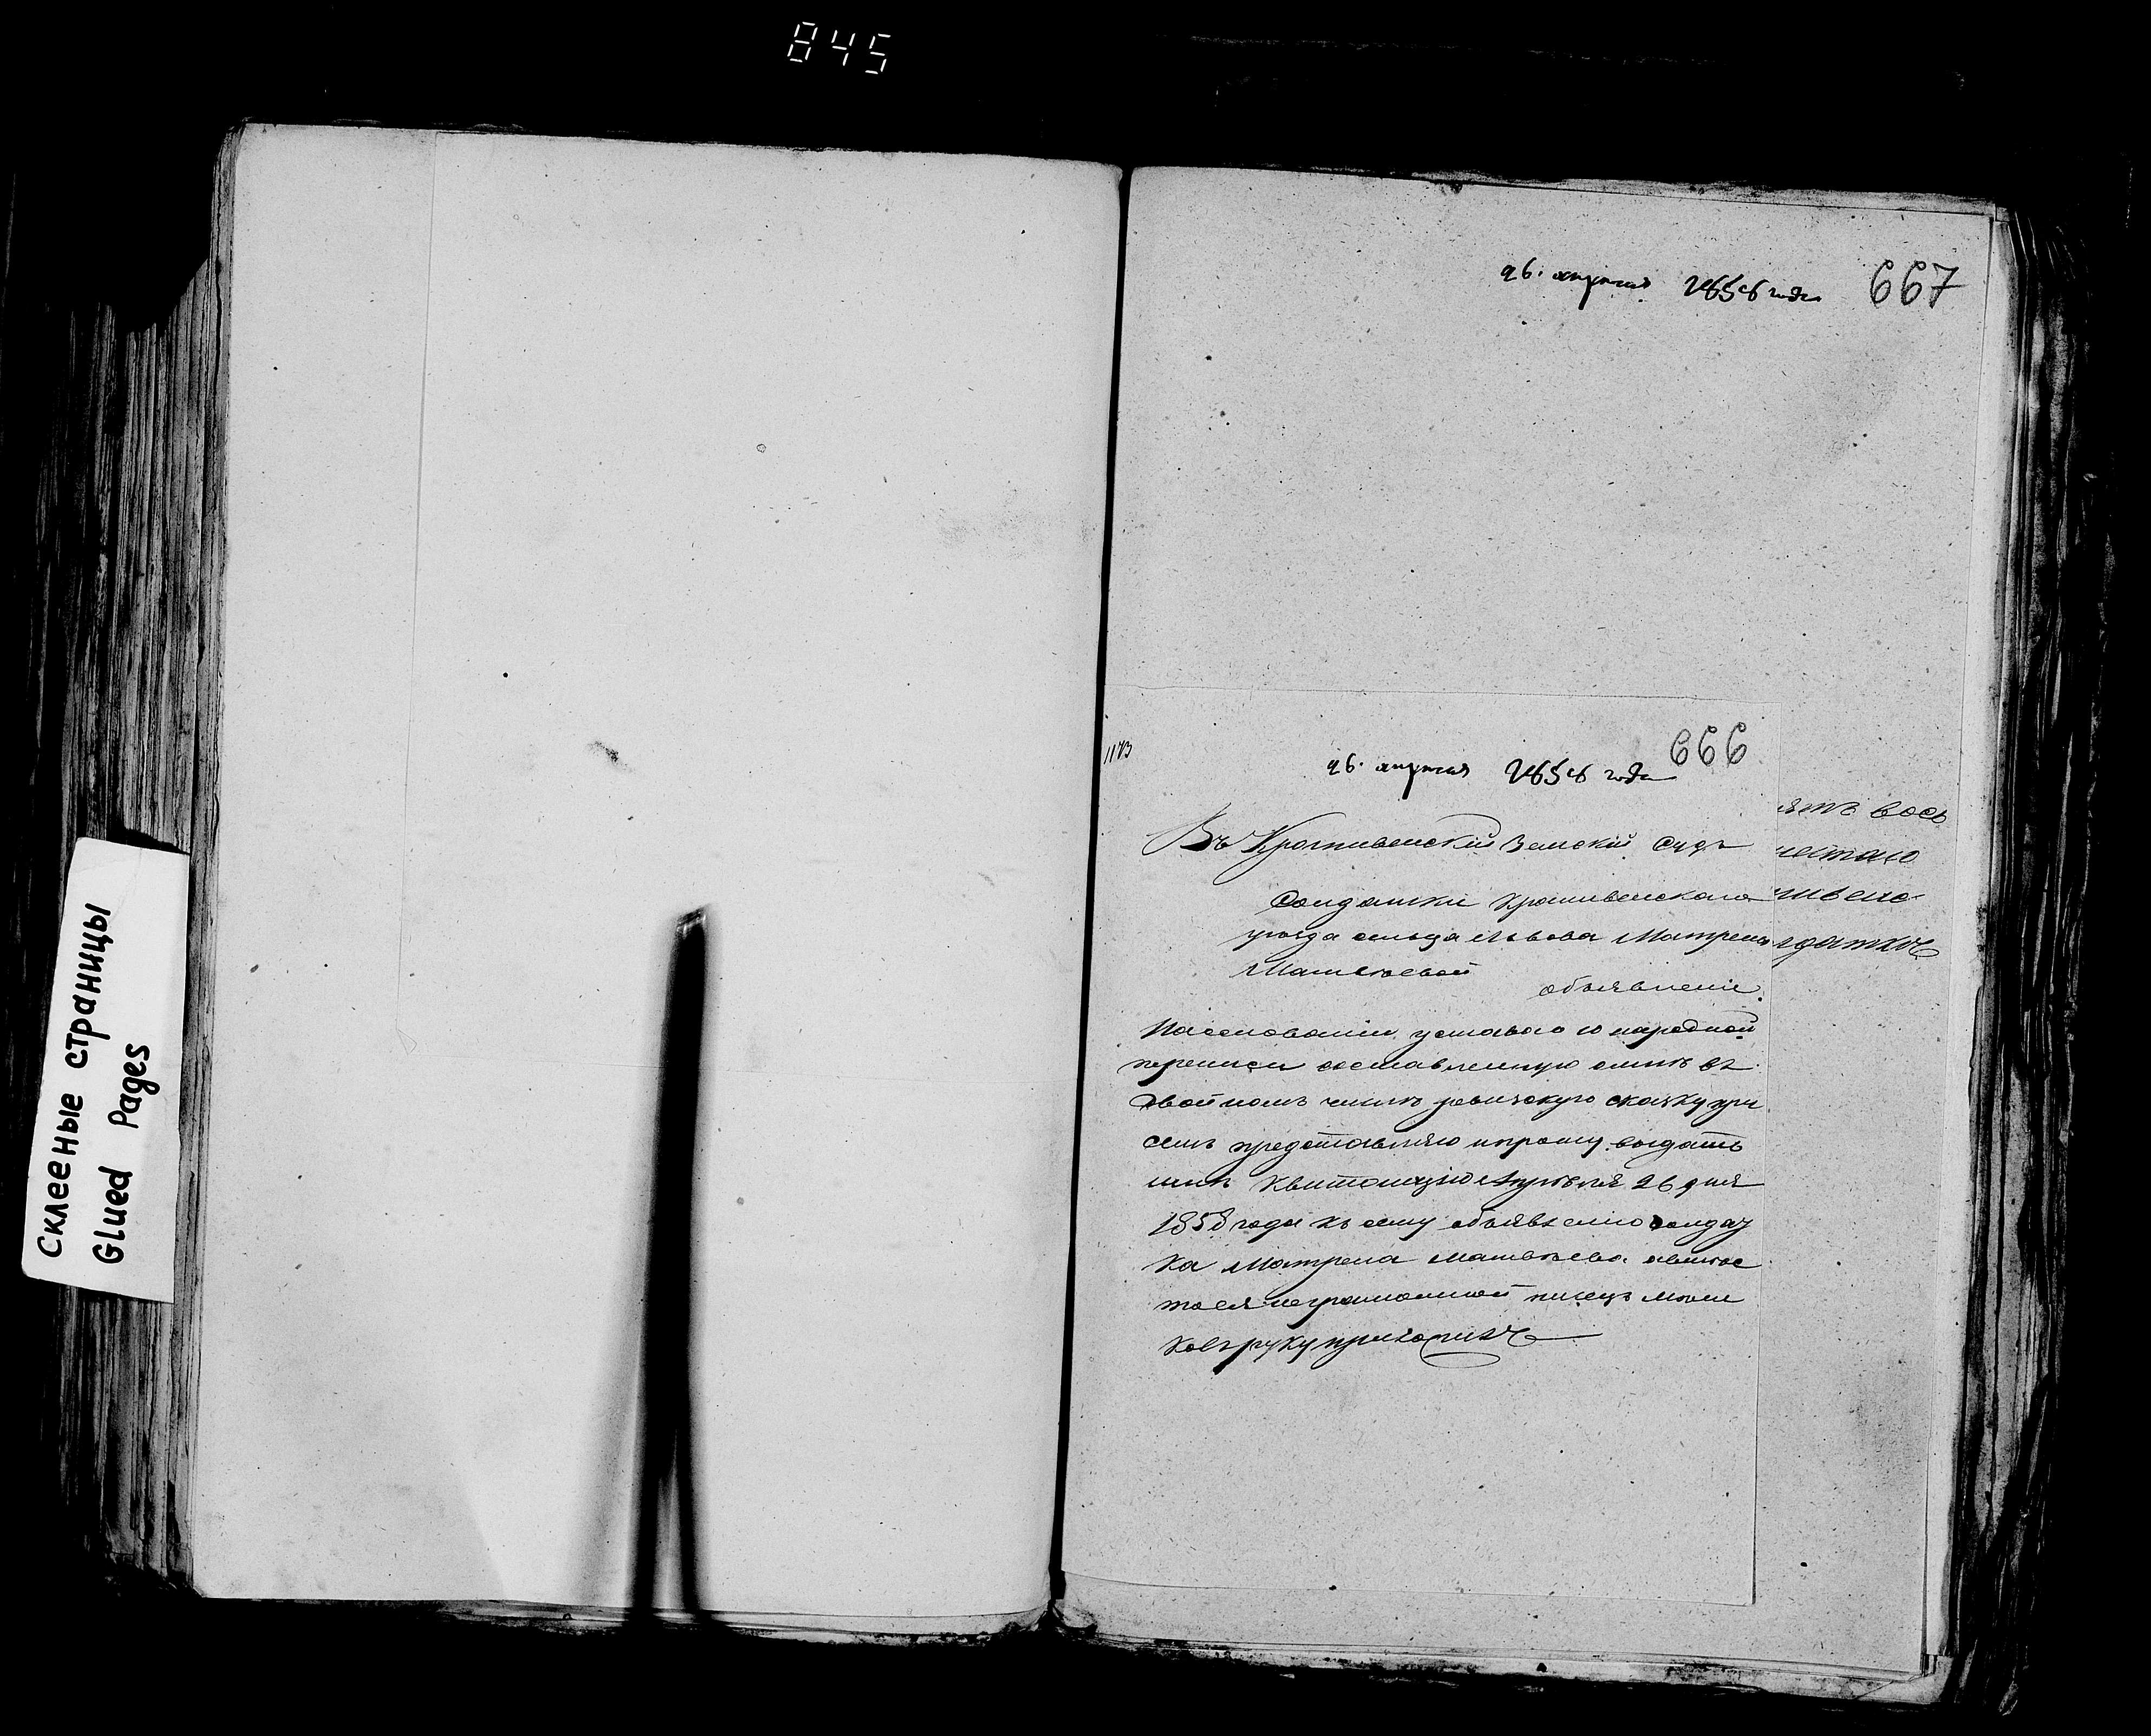 845
26. апреля 1858 года 667
Склееные страницы
Glued Pages
1173
666
26. апреля 1858 года
ятъ вось
Въ Крапивенскій Земскій Судъ
Солдатки Крапивенскаго
уѣзда сельца Львова Матрены
Матвѣевой
объявленіе.
На основаніи устава о народной
переписи составленную мною въ
двойномъ числѣ ревизскую сказку при
семъ представляю и прошу выдать
мнѣ квитанцію Апреля 26 дня
1858 года къ сему объявленію солдат
ка Матрена Матвѣева а вместо
неграмотной писецъ
ковъ руку приложилъ